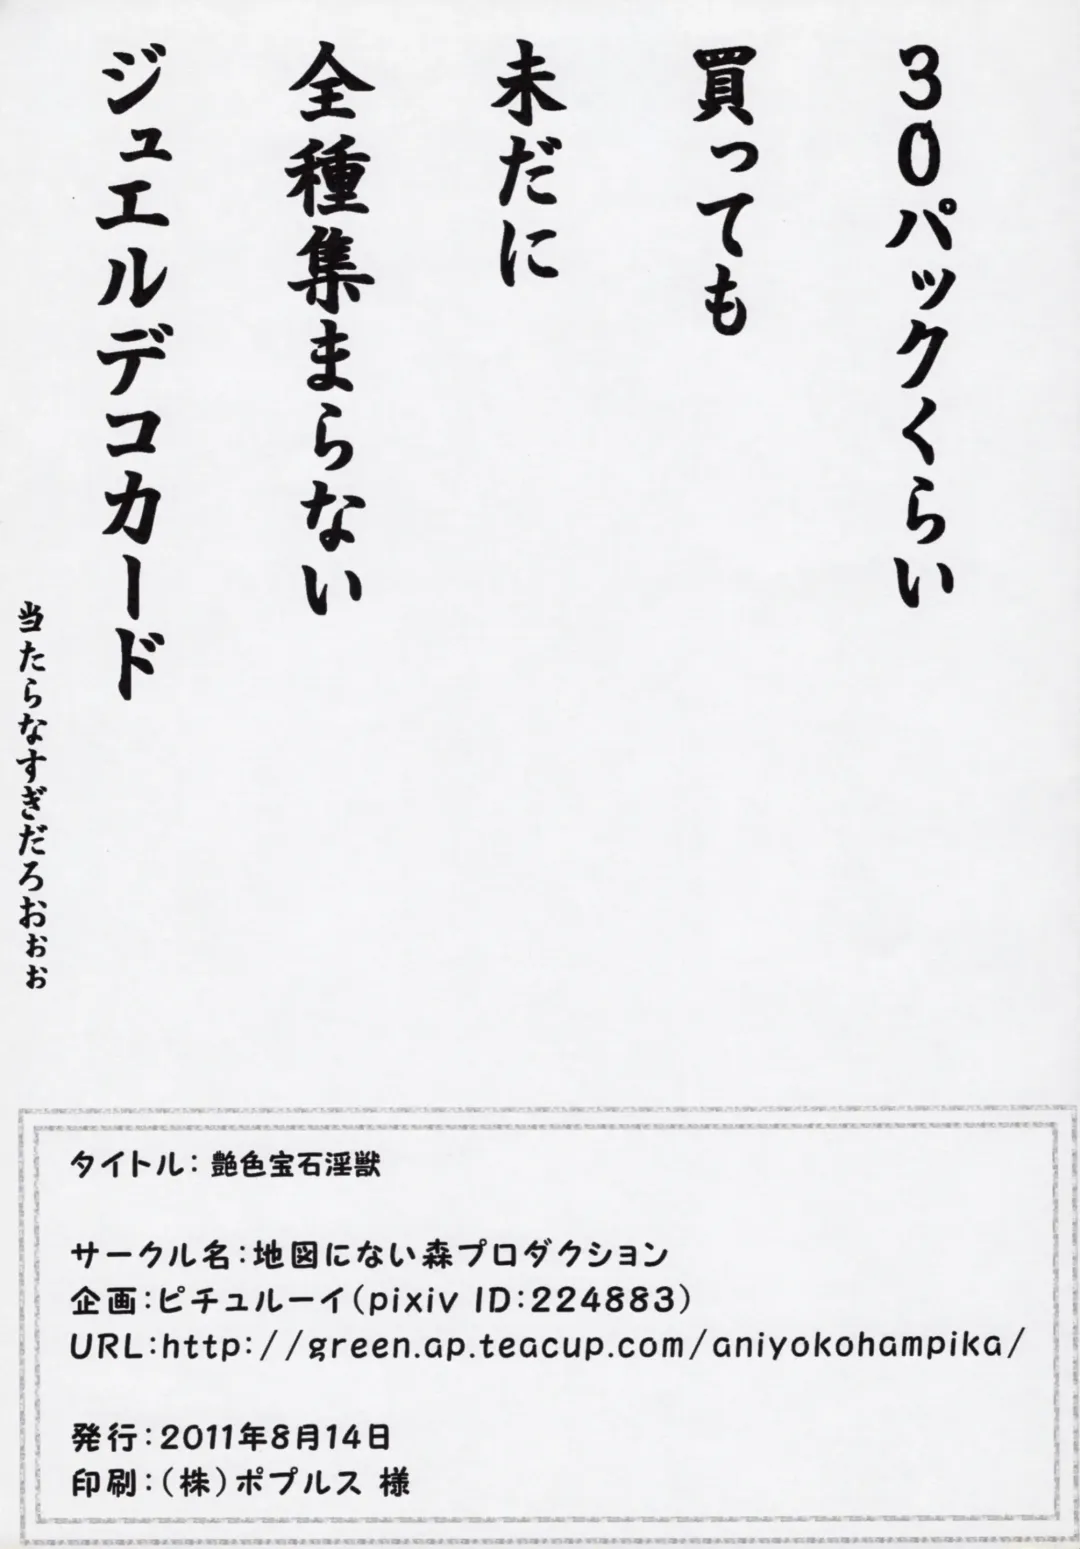 30パックくらい
買っても
未だに
全種集まらない
ジュエルデコカード
当たらなすぎだろおぉぉ
タイトル：艶色宝石淫獣
サークル名：地図にない森プロダクション
企画：ピチュルーイ(pixiv ID:224883)
URL:http://green.ap.teacup.com/aniyokohampika/
発行：2011年8月14日
印刷：(株)ポプルス 様